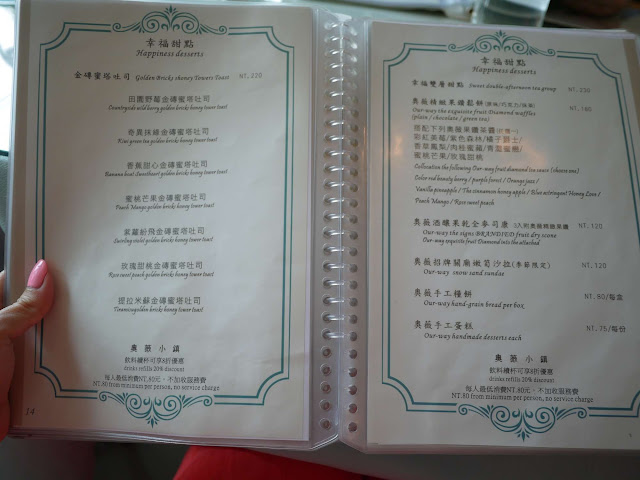 幸福甜點
Happiness desserts
金磚蜜塔吐司 Golden Bricks shoney Towers Toast NT. 220
田園野莓金磚蜜塔吐司
Countryside wild berry golden bricks honey tower toast
奇異抹綠金磚蜜塔吐司
Kiwi green tea golden bricks honey tower toast
香蕉甜心金磚蜜塔吐司
Banana boat Sweetheart golden bricks honey tower toast
蜜桃芒果金磚蜜塔吐司
Peach Mango golden bricks honey tower toast
紫蘿紛飛金磚蜜塔吐司
Swirling violet golden bricks honey tower toast
玫瑰甜桃金磚蜜塔吐司
Rose sweet peach golden bricks honey tower toast
提拉米蘇金磚蜜塔吐司
Tiramisu golden bricks honey tower toast
奧薇小鎮
飲料續杯可享8折優惠
drinks refills 20% discount
每人最低消費NT.80元、不加收服務費
NT.80 from minimum per person, no service charge
14
幸福甜點
Happiness desserts
幸福雙層甜點 Sweet double-afternoon tea group NT. 230
奧薇精緻果鑽鬆餅(原味/巧克力/抹茶) NT. 180
Our-way the exquisite fruit Diamond waffles
(plain / chocolate / green tea)
搭配下列奧薇果鑽茶醬
彩虹莓莓/紫色森林/橘子爵士/
香草鳳梨/肉桂蜜蘋/
蜜桃芒果/玫瑰甜桃
Collocation the following Our-way fruit diamond tea sauce (choose one)
Color rid beauty berry / purple forest / Orange jazz /
Vanilla pineapple / The cinnamon honey apple / Blue astringent Honey Love /
Peach Mango / Rose sweet peach
奧薇酒釀果乾全麥司康 NT. 120
Our-way the signs BRANDIED fruit dry scone
Our-way exquisite fruit Diamond into the attached
奧薇招牌關廟嫩筍沙拉(季節限定) NT. 120
Our-way snow sand sundae
奧薇手工糧餅 NT. 80/每盒
Our-way hand-grain bread per box
奧薇手工蛋糕 NT. 75/每份
Our-way handmade desserts each
奧薇小鎮
飲料續杯可享8折優惠
drinks refills 20% discount
每人最低消費NT.80元、不加收服務費
NT.80 from minimum per person, no service charge